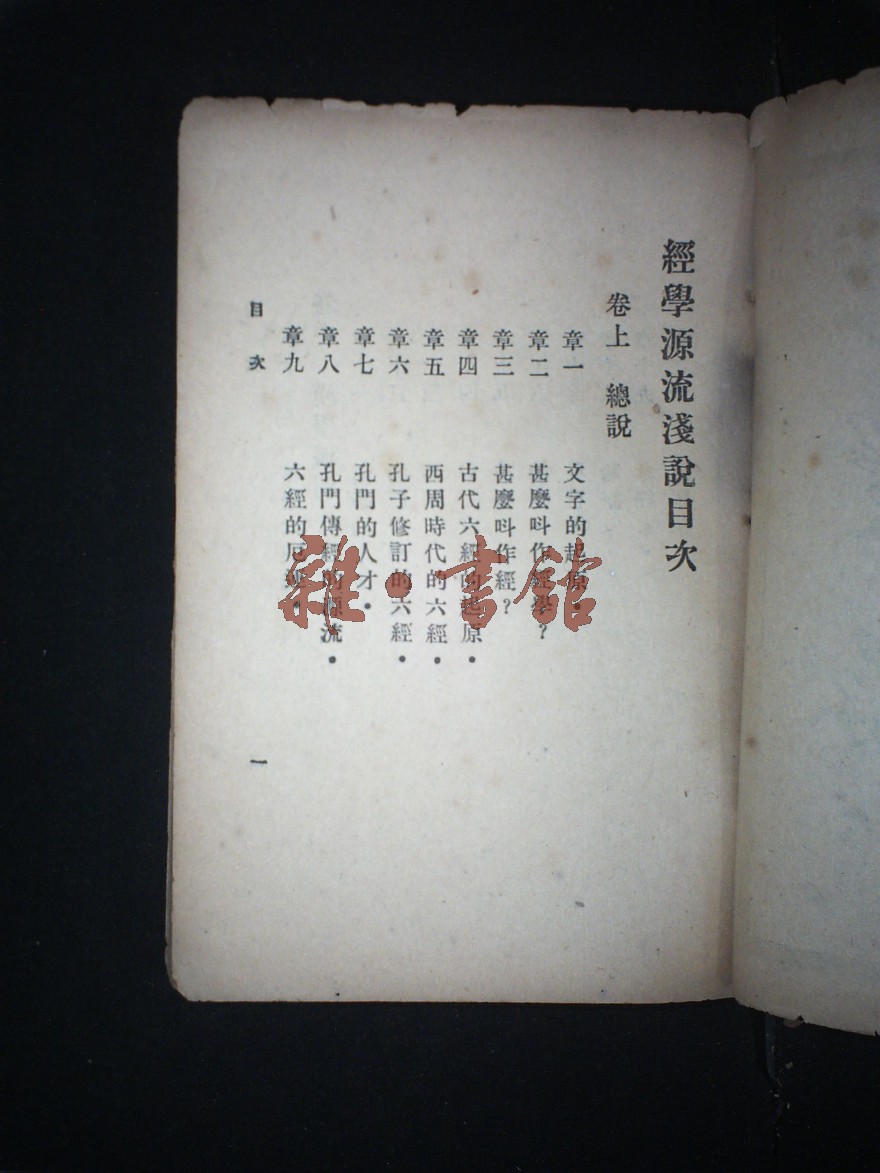 經學源流淺說目次
卷上 總說
章一 文字的起原．
章二 甚麼呌作經學？
章三 甚麼呌作經？
章四 古代六經的起原．
章五 西周時代的六經．
章六 孔子修訂的六經．
章七 孔門的人才．
章八 孔門傳經的源流．
章九 六經的厄運．
目次
一
雜·書館